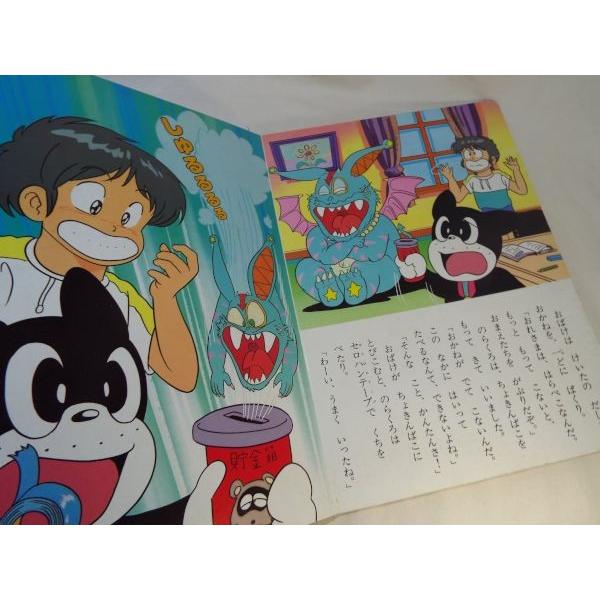 しゅるるるる
貯金箱
おばけは けいたの だし
おかねを、「ぺろに ぱくり。
「おれさまは、はらぺこなんだ。
もっと もって こないと、
おまえたちを がぶりだぞ。」
のらくろは、ちょきんばこを
もって、きて いいました。
「おかねが でて こないんだ。
この なかに はいって
たべるなんて、できないよね。」
「そんな こと、かんたんさ！」
おばけが ちょきんばこに
とびこむと、のらくろは
セロハンテープで くちを
ぺたり。
「わーい、うまく いったね。」